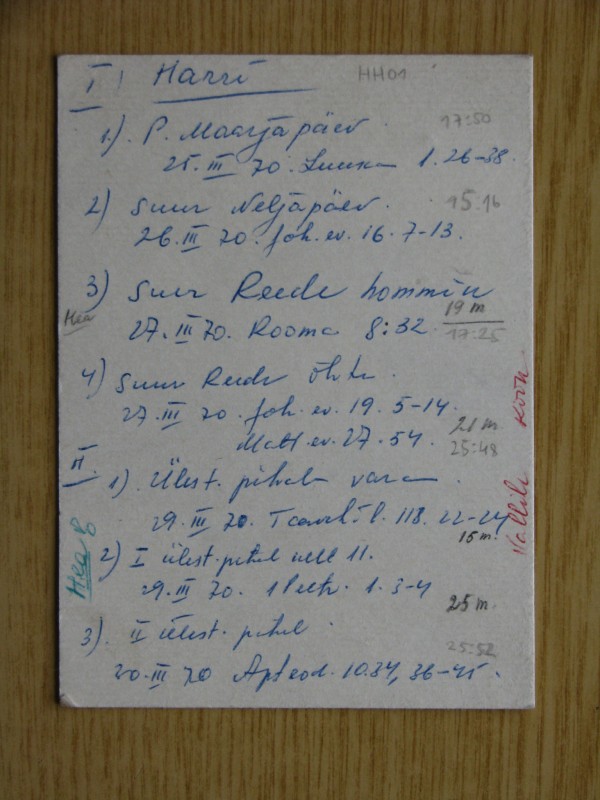 I Harri HH01
1.) P. Maarja päev 17:50
25. III 70. Luuka 1. 26-38.
2) Suur Neljapäev. 15.16
26. III 70. Joh. ev. 16. 7-13.
3) Suur Reede hommik
Hea 27. III 70. Rooma 8:32 19 m
17:25
4) Suur Reede õhtu.
27. III 70. Joh. ev. 19. 5-14. 21 m.
Matt ev. 27. 54. 25:48
II. 1) Ülest. pühal vara
29. III 70. 118. 22-24
15 m.
2) I ülest. pühal kell 11.
29. III 70. 1 Peetr. 1. 3-4
25 m.
3). II ülest. pühal
25:52
30. III 70 Apt. 10.34, 36-45.
Hea